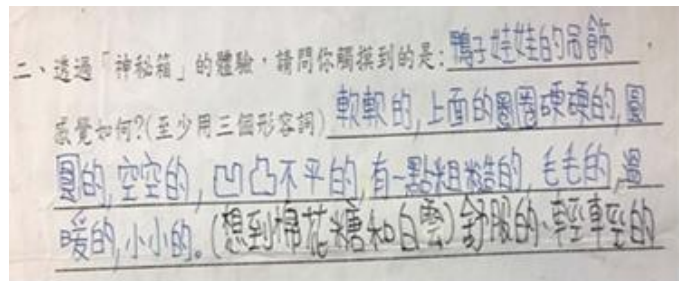 二、透過「神秘箱」的體驗，請問你觸摸到的是：鴨子娃娃的吊飾。
感覺如何?(至少用三個形容詞) 軟軟的,上面的圈圈硬硬的,圓
圓的,空空的,凹凸不平的,有一點粗糙的,毛毛的,溫
暖的,小小的。(想到棉花糖和白雲)舒服的、輕輕的